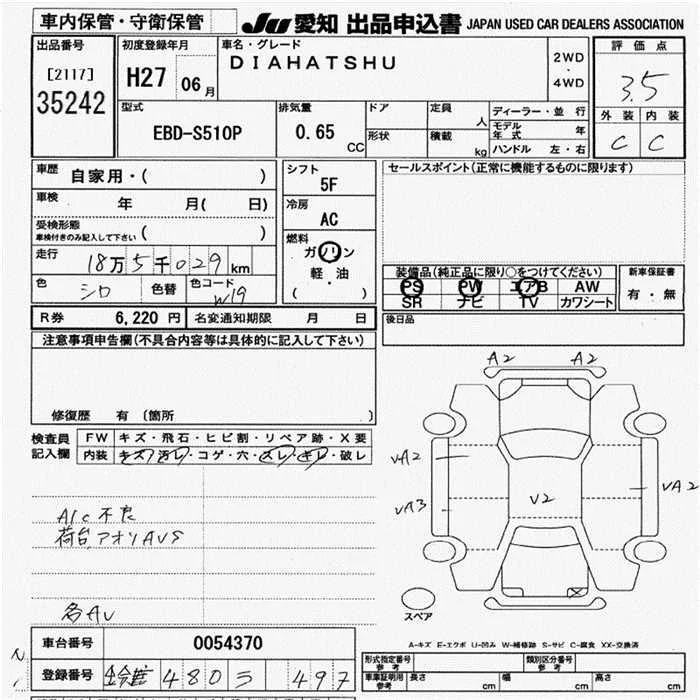 車内保管・守衛保管
JU 愛知 出品申込書 JAPAN USED CAR DEALERS ASSOCIATION
出品番号
[2117]
35242
初度登録年月
H27 06月
車名・グレード
DIAHATSHU
2WD
・
4WD
評価点
3.5
外装 内装
C C
型式
EBD-S510P
排気量
0.65 CC
ドア
形状
定員 人
積載 kg
ディーラー・並行
モデル年式 年
ハンドル 左・右
車歴 自家用・( )
車検 年 月( 日)
受検形態
車検付きのみ記入して下さい ( )
走行 18万5千029km
色 シロ 色替 色コード W19
シフト
5F
冷房
AC
燃料
ガソリン
軽・油
( )
セールスポイント(正常に機能するものに限ります)
装備品(純正品に限り○をつけてください)
PS PW エアB AW
SR ナビ TV カワシート
新車保証書
有・無
後日品
R券 6,220円 名変通知期限 月 日
注意事項申告欄(不具合内容等は具体的に記入して下さい)
修復歴 有 〔箇所 〕
検査員記入欄
FW キズ・飛石・ヒビ割・リペア跡・X要
内装 キズ・汚レ・コゲ・穴・スレ・キレ・破レ
A/C不良
荷台,アオリAUS
各AU
A2 A2
UA2
UA3
UA2
U2
スペア
A-キズ E-エクボ U-凹み W-補修跡 S-サビ C-腐食 XX-交換済
車台番号 0054370
登録番号 480 497
型式指定番号 参考
類別区分番号 参考
車庫証明用 参考 長さ cm 幅 cm 高さ cm